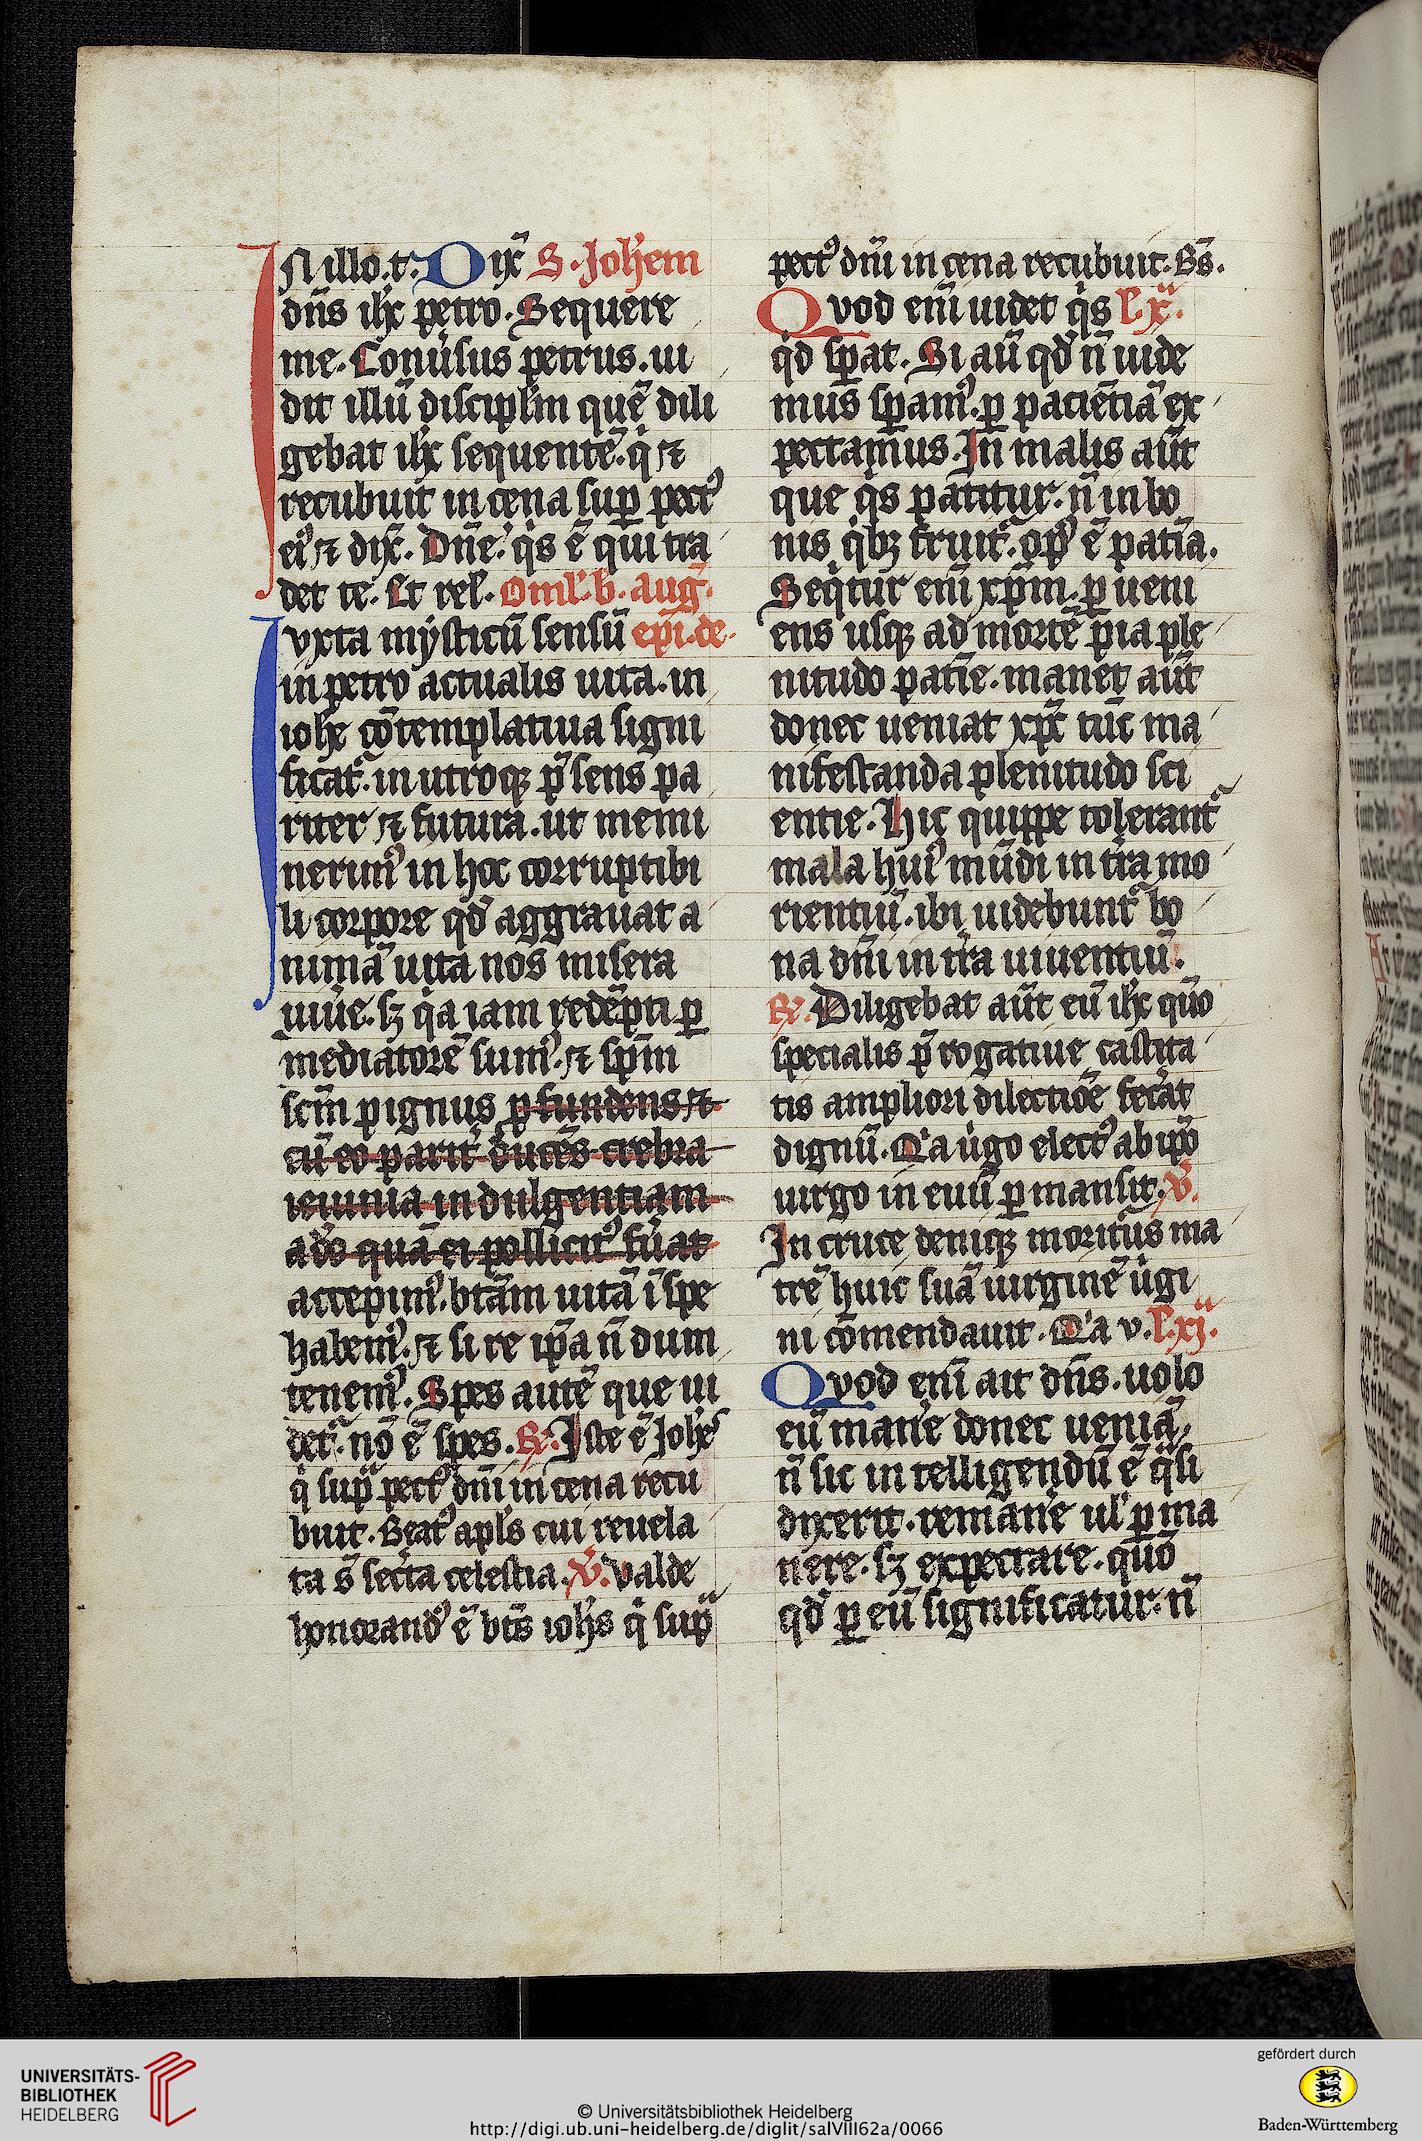 IN illo.t. Dix̄ S. Johem
dn̄s ih̄c petro. Sequere
me. Conuersus petrus. ui
dit illū discipl'm quē dili
gebat ih̄c sequentē. q̇ et
recubuit in cena sup pect⁹
ei⁹ et dix̄. Dn̄e. q̇s ē qui tra
det te. Et rel'. Oml'. b. aug̃.
Iuxta mẏsticū sensū ep̄i. de.
in petro actualis uita. in
ioh̄e cōtemplatiua signi
ficat᷑. in utroqꝫ p̄sens pa
riter et futura. ut memi
nerim⁹ in hoc corruptibi
li corpore qd̄ aggrauat a
nimā uita nos misera
uiūe. sꝫ q̇a iam redēpti ꝑ
mediatorē sum⁹. et sp̄m
sc̄m pignus ꝓfundens et
cū eo parit̄ ducēs crebra
ieiunia indulgentiam
ad̄o quā ei pollicit⁹ fūat
accepim⁹. btām uitā ī spe
habem⁹. et si re ip̄a n̄ dum
tenem⁹. Spes autē que ui
det᷑. nō ē spes. ℟. Iste ē Joh̄es
q̇ sup̄ pect⁹ dn̄i in cena recu
buit. Beat⁹ apl's cui reuela
ta s̄ sec̄ta celestia. ℣. Valde
honorand⁹ ē bt̄s ioh̄s q̇ sup̄
pect⁹ dn̄i in cena recubuit. Bs̄.
Quod eni̅ uidet q̇s l'.x̄ᵃ.
qd̄ sꝑat. Si aū qd̄ n̄ uide
mus sꝑam⁹. ꝑ paciētiā ex
pectamus. In malis aūt
que q̇s patitur. n̄ in bo
nis q̇bꝫ fruit᷑. op⁹ ē patīa.
Seq̇tur eni̅ xp̄m. ꝑueni
ens usqꝫ ad mortē pia ple
nitudo patīe. manet aūt
donec ueniat xp̄c tūc ma
nifestanda plenitudo sci
entie. Hic quippe tolerant᷑
mala hui⁹ mūdi in tr̄a mo
rientiū. ibi uidebunt᷑ bo
na dn̄i in tr̄a uiuentiū.
℟. Diligebat aūt eū ih̄c qūo
specialis p̄rogatiue castita
tis ampliori dilectiōe fec̄at
dignū. Q'a ūgo elect⁹ ab ip̄o
uirgo in euū ꝑmansit. ℣.
In cruce deniqꝫ moritūs ma
trē huic suā uirginē ūgi
ni cōmendauit. Q'a v. l'.xj̄ᵃ.
Quod eni̅ ait dn̄s. uolo
eū man̄e donec ueniā,
n̄ sic intelligendū ē q̄si
dixerit. reman̄e ul' ꝑma
nere. sꝫ expectare. qūo
qd̄ ꝑ eū significatur. n̄
UNIVERSITÄTS-
BIBLIOTHEK
HEIDELBERG
© Universitätsbibliothek Heidelberg
http://digi.ub.uni-heidelberg.de/diglit/salVIII62a/0066
gefördert durch
Baden-Württemberg